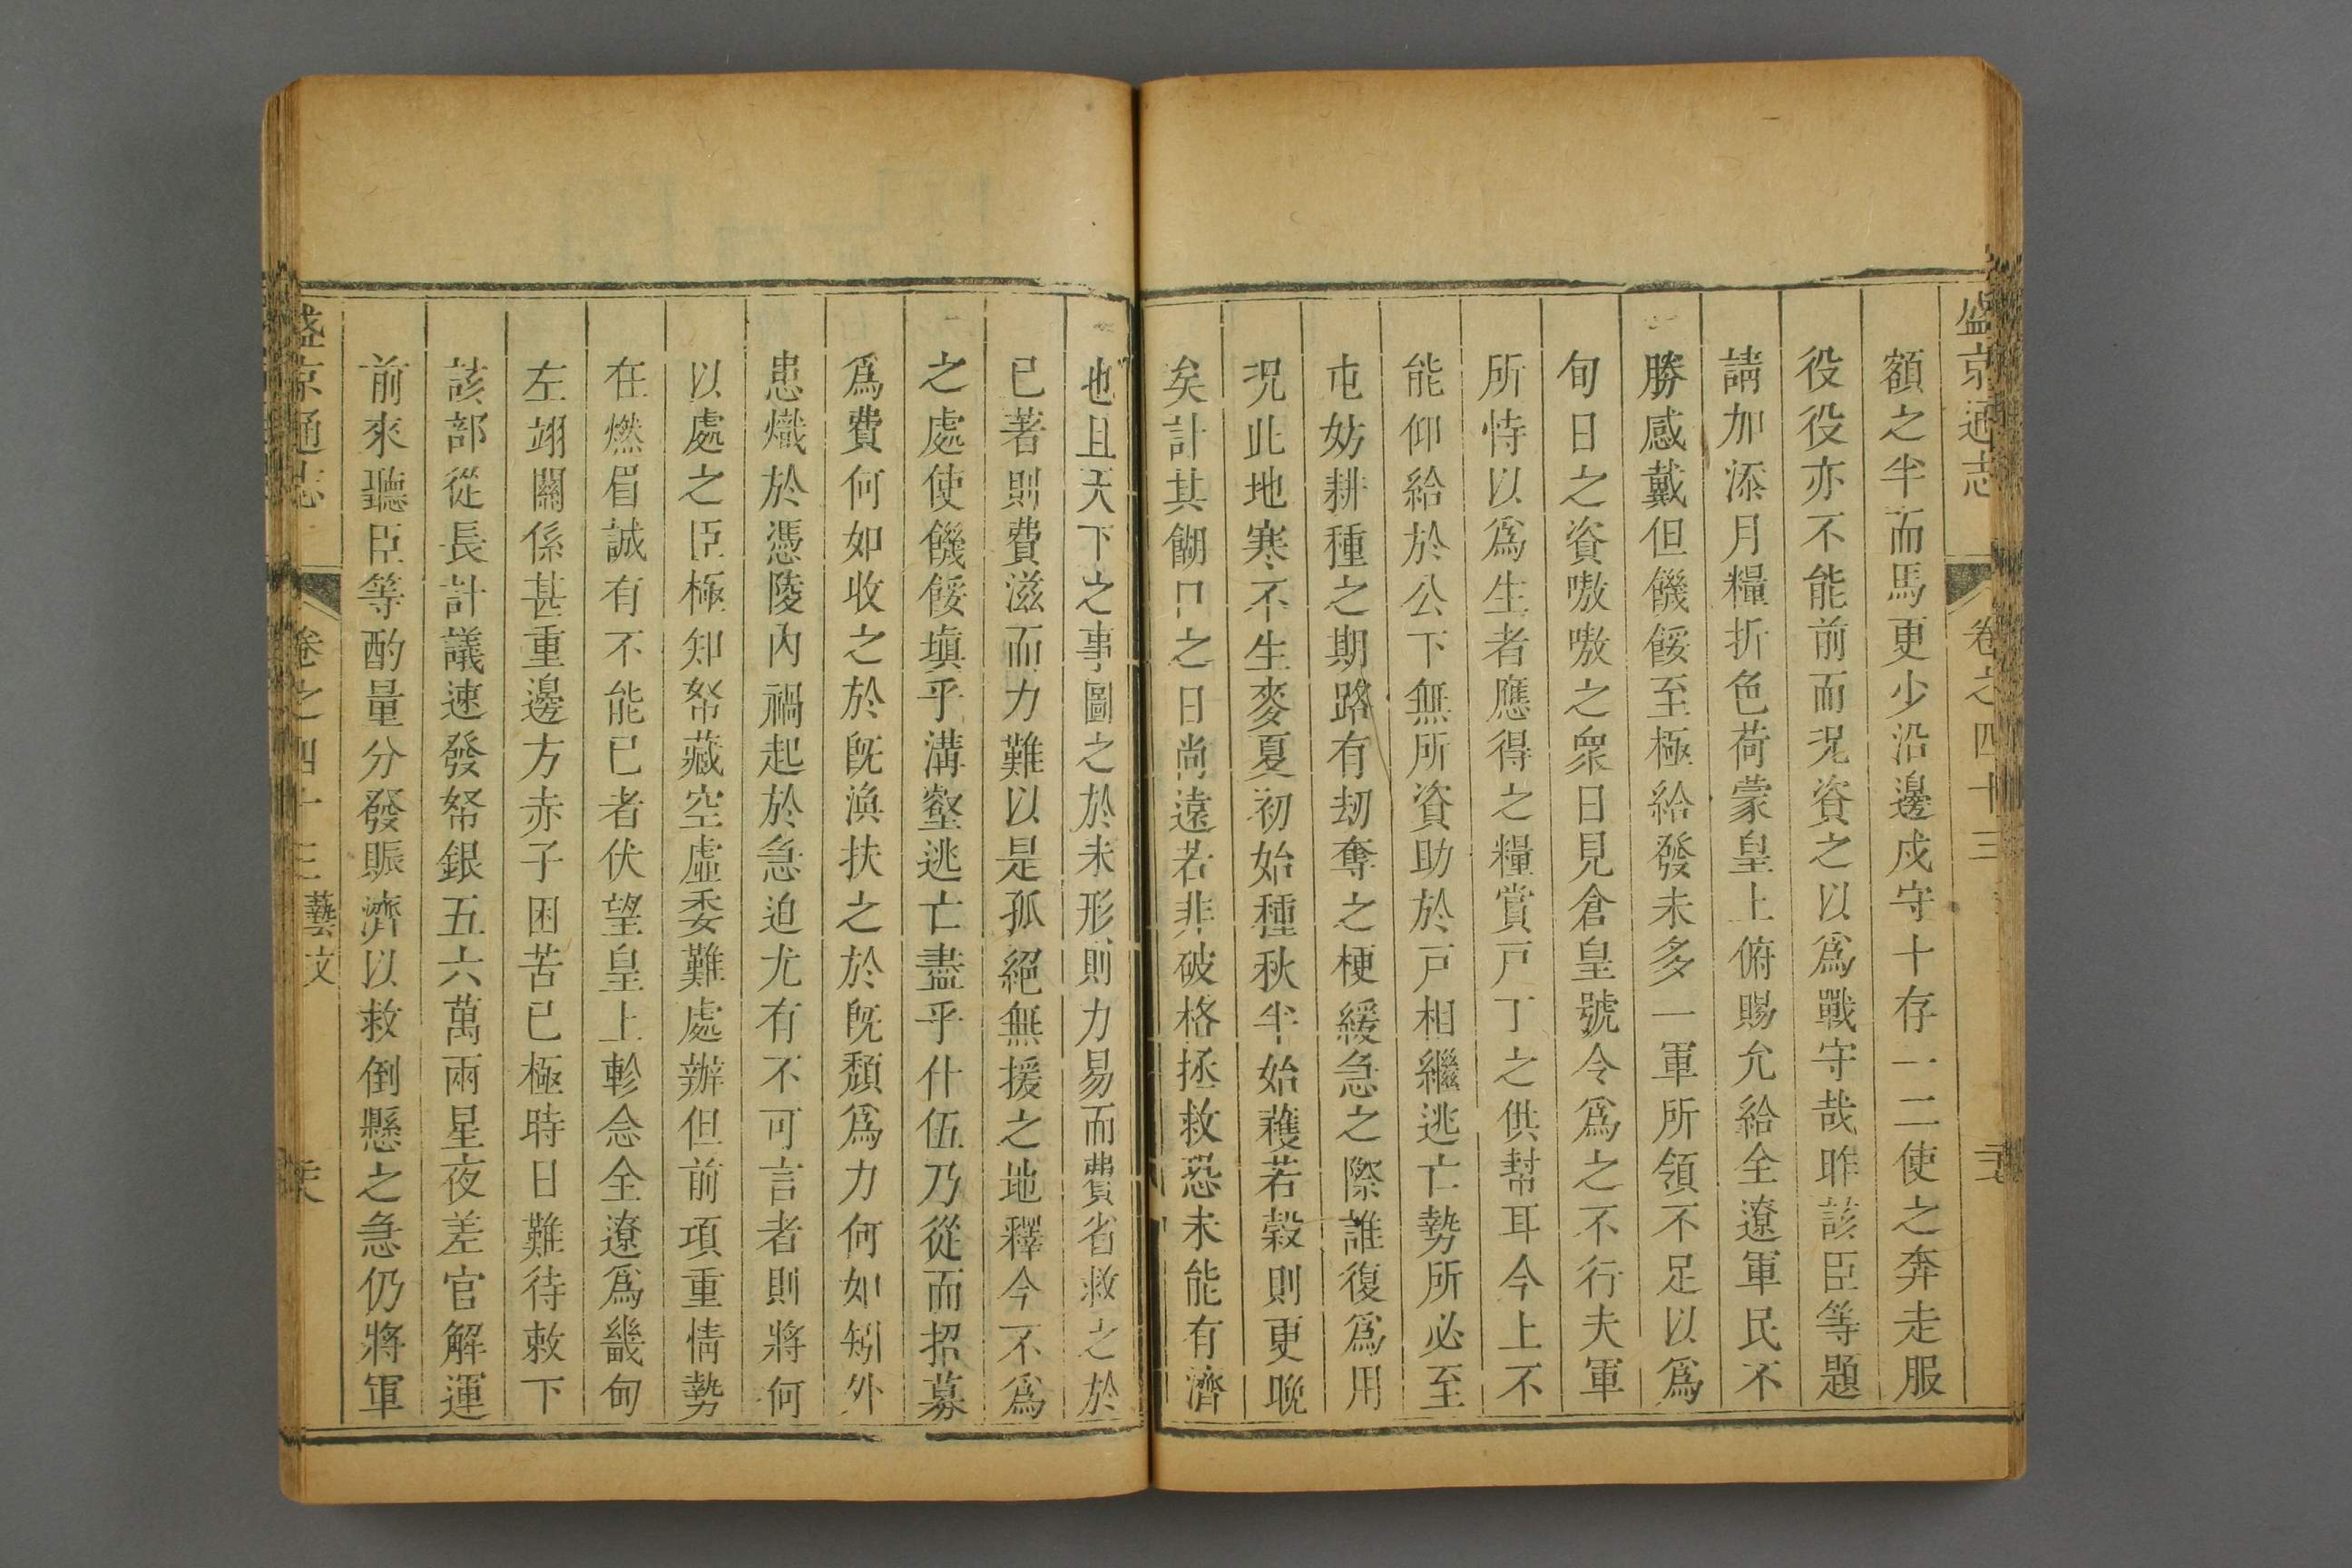 盛京通志 卷之四十三
額之半而馬更少沿邊戍守十存一二使之奔走服
役役亦不能前而況資之以爲戰守哉昨該臣等題
請加添月糧折色荷蒙皇上俯賜允給全遼軍民不
勝感戴但饑餒至極給發未多一軍所領不足以爲
旬日之資嗷嗷之衆日見倉皇號令爲之不行夫軍
所恃以爲生者應得之糧賞戸丁之供幫耳今上不
能仰給於公下無所資助於戸相繼逃亡勢所必至
屯妨耕種之期路有刼奪之梗緩急之際誰復爲用
況此地寒不生麥夏初始種秋半始穫若穀則更晚
矣計其餬口之日尚遠若非破格拯救恐未能有濟
也且天下之事圖之於未形則力易而費省救之於
已著則費滋而力難以是孤絕無援之地釋今不爲
之處使饑餒塡乎溝壑逃亡盡乎什伍乃從而招募
爲費何如收之於旣渙扶之於旣頹爲力何如矧外
患熾於憑陵內禍起於急迫尤有不可言者則將何
以處之臣極知帑藏空虛委難處辦但前項重情勢
在燃眉誠有不能已者伏望皇上軫念全遼爲畿甸
左翊關係甚重邊方赤子困苦已極時日難待敕下
該部從長計議速發帑銀五六萬兩星夜差官解運
前來聽臣等酌量分發賑濟以救倒懸之急仍將軍
盛京通志 卷之四十三 藝文